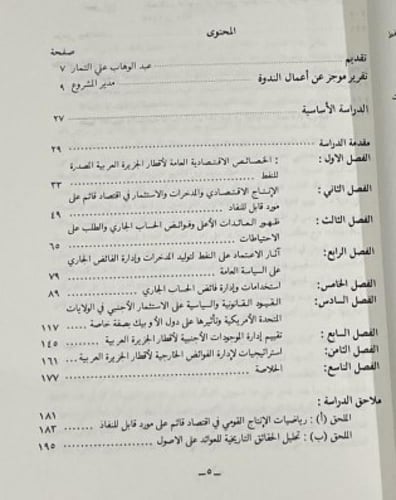 المحتوى
صفحة
تقديم ........ عبد الوهاب علي التمار ٧
تقرير موجز عن أعمال الندوة ........ مدير المشروع ٩
الدراسة الأساسية ........ ٢٧
مقدمة الدراسة ........ ٢٩
الفصل الاول : الخصائص الاقتصادية العامة لأقطار الجزيرة العربية المصدرة
للنفط ........ ٣٣
الفصل الثاني : الإنتاج الاقتصادي والمدخرات والاستثمار في اقتصاد قائم على
مورد قابل للنفاد ........ ٤٩
الفصل الثالث : ظهور العائدات الأعلى وفوائض الحساب الجاري والطلب على
الاحتياطات ........ ٦٥
الفصل الرابع : آثار الاعتماد على النفط لتوليد المدخرات وإدارة الفائض الجاري
على السياسة العامة ........ ٧٩
الفصل الخامس : استخدامات وإدارة فائض الحساب الجاري ........ ٨٩
الفصل السادس : القيود القانونية والسياسية على الاستثمار الأجنبي في الولايات
المتحدة الأمريكية وتأثيرها على دول الأوبيك بصفة خاصة ........ ١١٧
الفصل السابع : تقييم إدارة الموجودات الأجنبية لأقطار الجزيرة العربية ........ ١٤٥
الفصل الثامن : استراتيجيات لإدارة الفوائض الخارجية لأقطار الجزيرة العربية ... ١٦١
الفصل التاسع : الخلاصة ........ ١٧٧
ملاحق الدراسة : ........ ١٨١
الملحق (أ) : رياضيات الإنتاج القومي في اقتصاد قائم على مورد قابل للنفاد ... ١٨٣
الملحق (ب) : تحليل الحقائق التاريخية للعوائد على الاصول ........ ١٩٥
ــ ٥ ــ